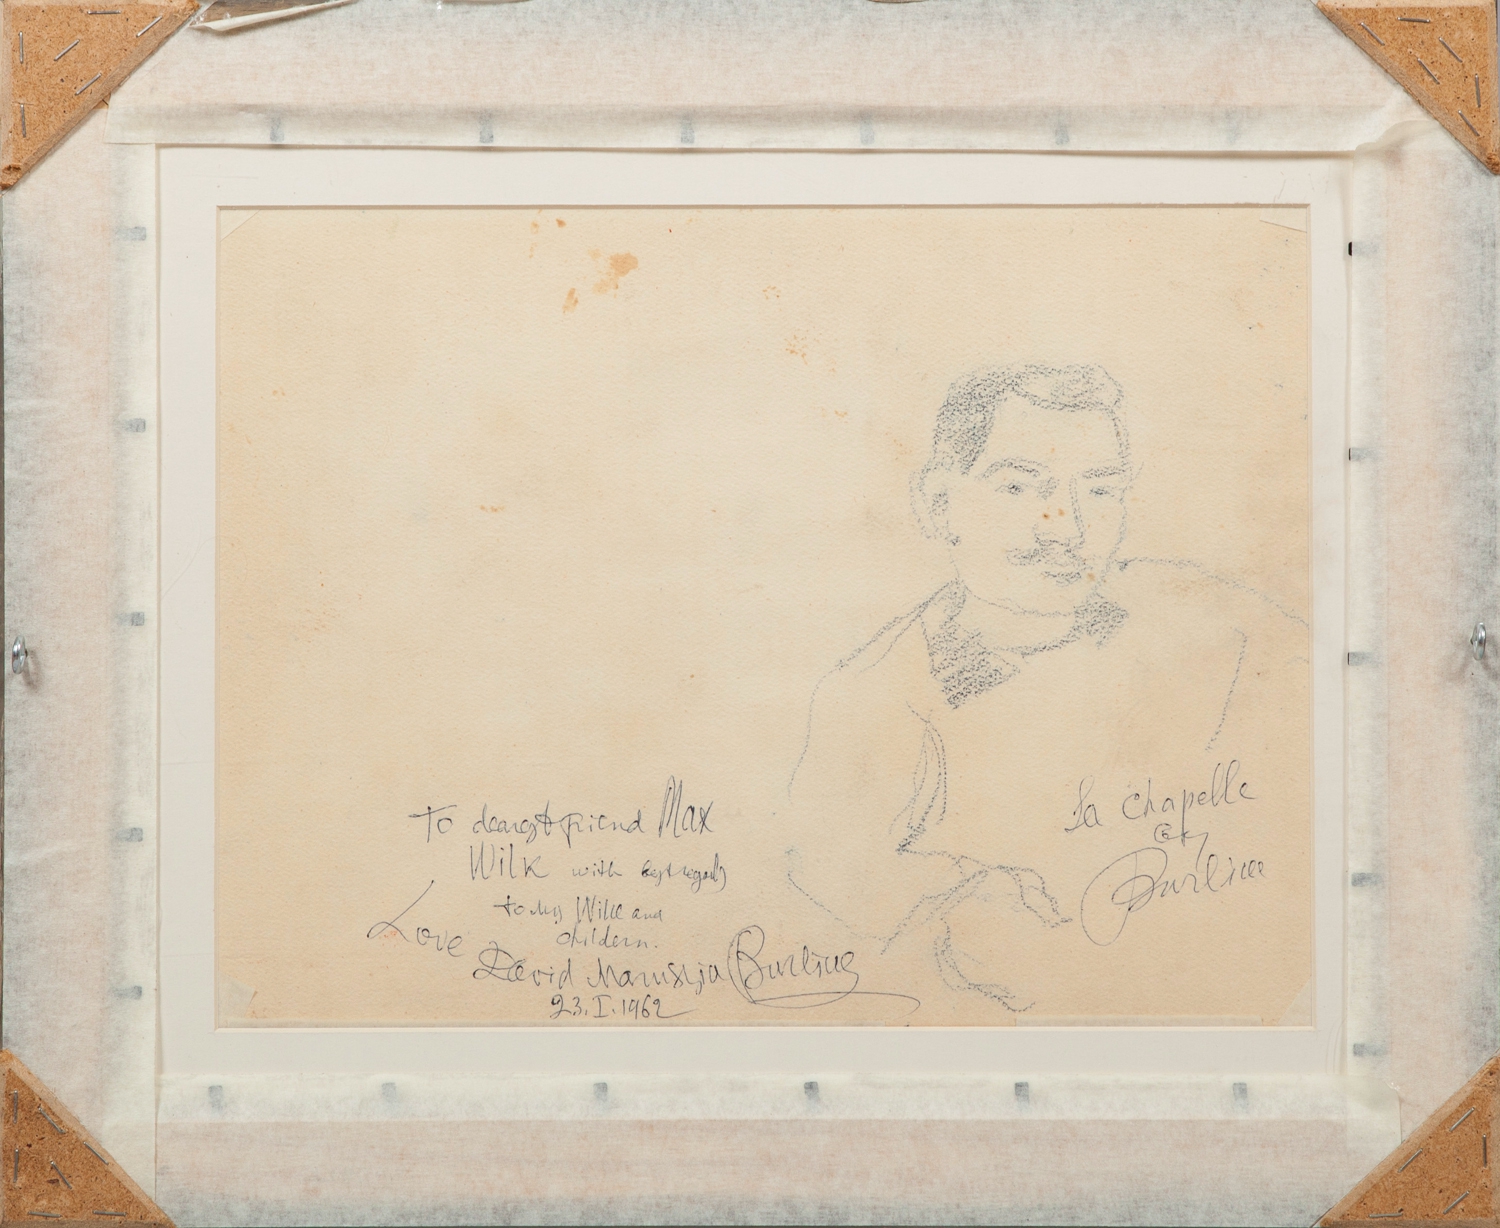 To dearest friend Max
Wilk with best regards
to Mrs Wilk and
childern.
Love David Marussja Burliuk
23.I.1962
La Chapelle
by
Burliuk